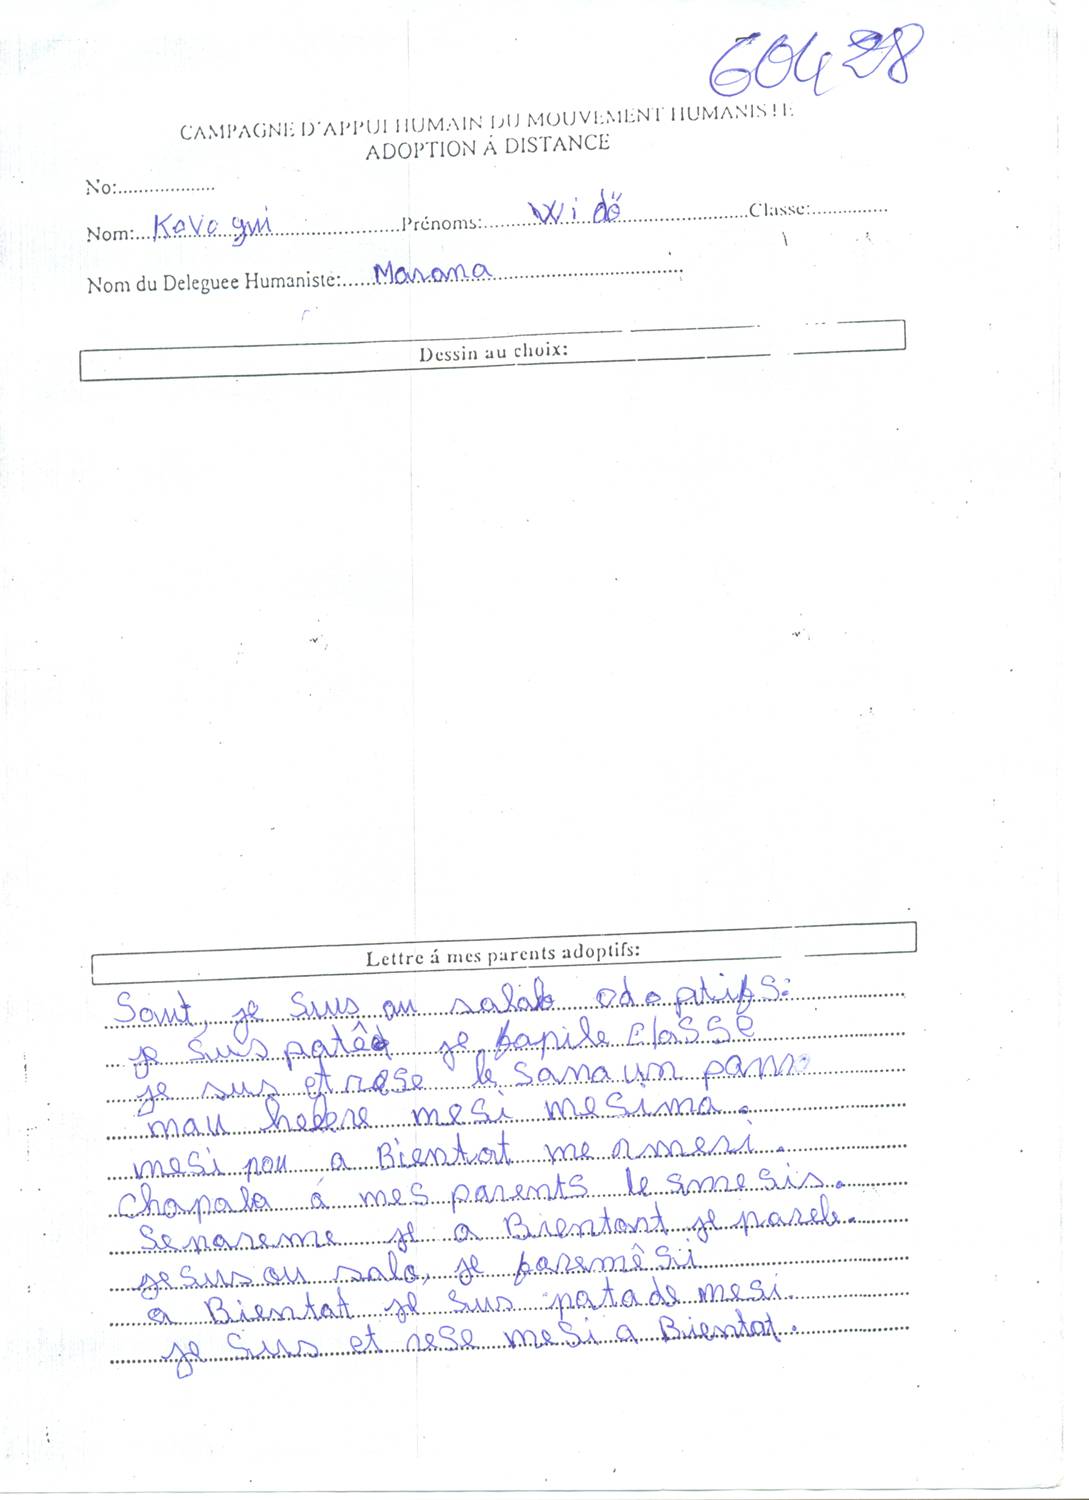 60428
CAMPAGNE D'APPUI HUMAIN DU MOUVEMENT HUMANISTE
ADOPTION Á DISTANCE
No:...................
Nom:...Kovogui.........................Prénoms:...........Widő.........................Classe:...............
Nom du Deleguee Humaniste:......Marana....................................
Dessin au choix:
Lettre á mes parents adoptifs:
Sant, je Suis au salab odoptifs:
je Suis patêd je fapile classe
je sus et rese le Sana un pam
mau hebere mesi mesima.
mesi pou a Bientot me nmesi.
Chapala à mes parents le smesis.
Senareme je a Bientant je pareb.
je sus ou salo, je paremêsi
a Bientat je Sus patade mesi.
je Suis et rese mesi a Bientat.